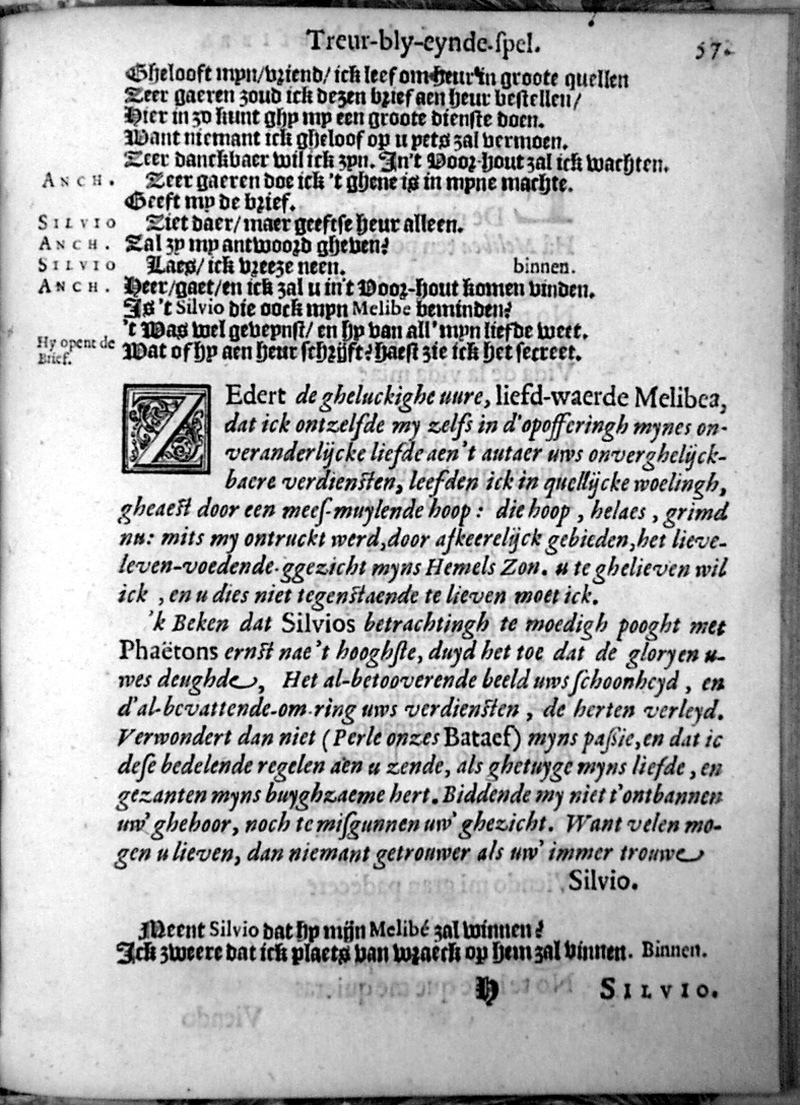 Treur-bly-eynde-spel. 57.
Ghelooft myn/vriend/ick leef om heur in groote quellen
Zeer gaeren zoud ick dezen brief aen heur bestellen/
Hier in zo kunt ghy my een groote dienste doen.
Want niemant ick gheloof op u yets zal vermoen.
Zeer danckbaer wil ick zyn. In't Voor-hout zal ick wachten.
ANCH. Zeer gaeren doe ick 't ghene is in myne machte.
Geeft my de brief.
SILVIO Ziet daer/maer geeftse heur alleen.
ANCH. Zal zy my antwoord gheven?
SILVIO Laes/ick vreeze neen. binnen.
ANCH. Heer/gaet/en ick zal u in't Voor-hout komen vinden.
Is 't Silvio die oock myn Melibe beminden?
't Was wel geveynst/en hy van all' myn liefde weet.
Hy opent de Brief. Wat of hy aen heur schrijft? haest zie ick het secreet.
ZEdert de gheluckighe uure, liefd-waerde Melibea,
dat ick ontzelfde my zelfs in d'opofferingh mynes on-
veranderlijcke liefde aen't autaer uws onverghelijck-
baere verdiensten, leefden ick in quellijcke woelingh,
gheaest door een meef-muylende hoop: die hoop, helaes, grimd
nu: mits my ontruckt werd, door afkeerelijck gebieden, het lieve-
leven-voedende-ggezicht myns Hemels Zon. u te ghelieven wil
ick, en u dies niet tegenstaende te lieven moet ick.
'k Beken dat Silvios betrachtingh te moedigh pooght met
Phaëtons ernst nae't hooghste, duyd het toe dat de glory en u-
wes deughde, Het al-betooverende beeld uws schoonheyd, en
d'al-bevattende-om-ring uws verdiensten, de herten verleyd.
Verwondert dan niet (Perle onzes Bataef) myns passie, en dat ic
dese bedelende regelen aen u zende, als ghetuyge myns liefde, en
gezanten myns buyghzaeme hert. Biddende my niet t'ontbannen
uw' ghehoor, noch te misgunnen uw' ghezicht. Want velen mo-
gen u lieven, dan niemant getrouwer als uw' immer trouwe
Silvio.
Meent Silvio dat hy mijn Melibé zal winnen?
Ick zweere dat ick plaets van wraeck op hem zal vinnen. Binnen.
H SILVIO.